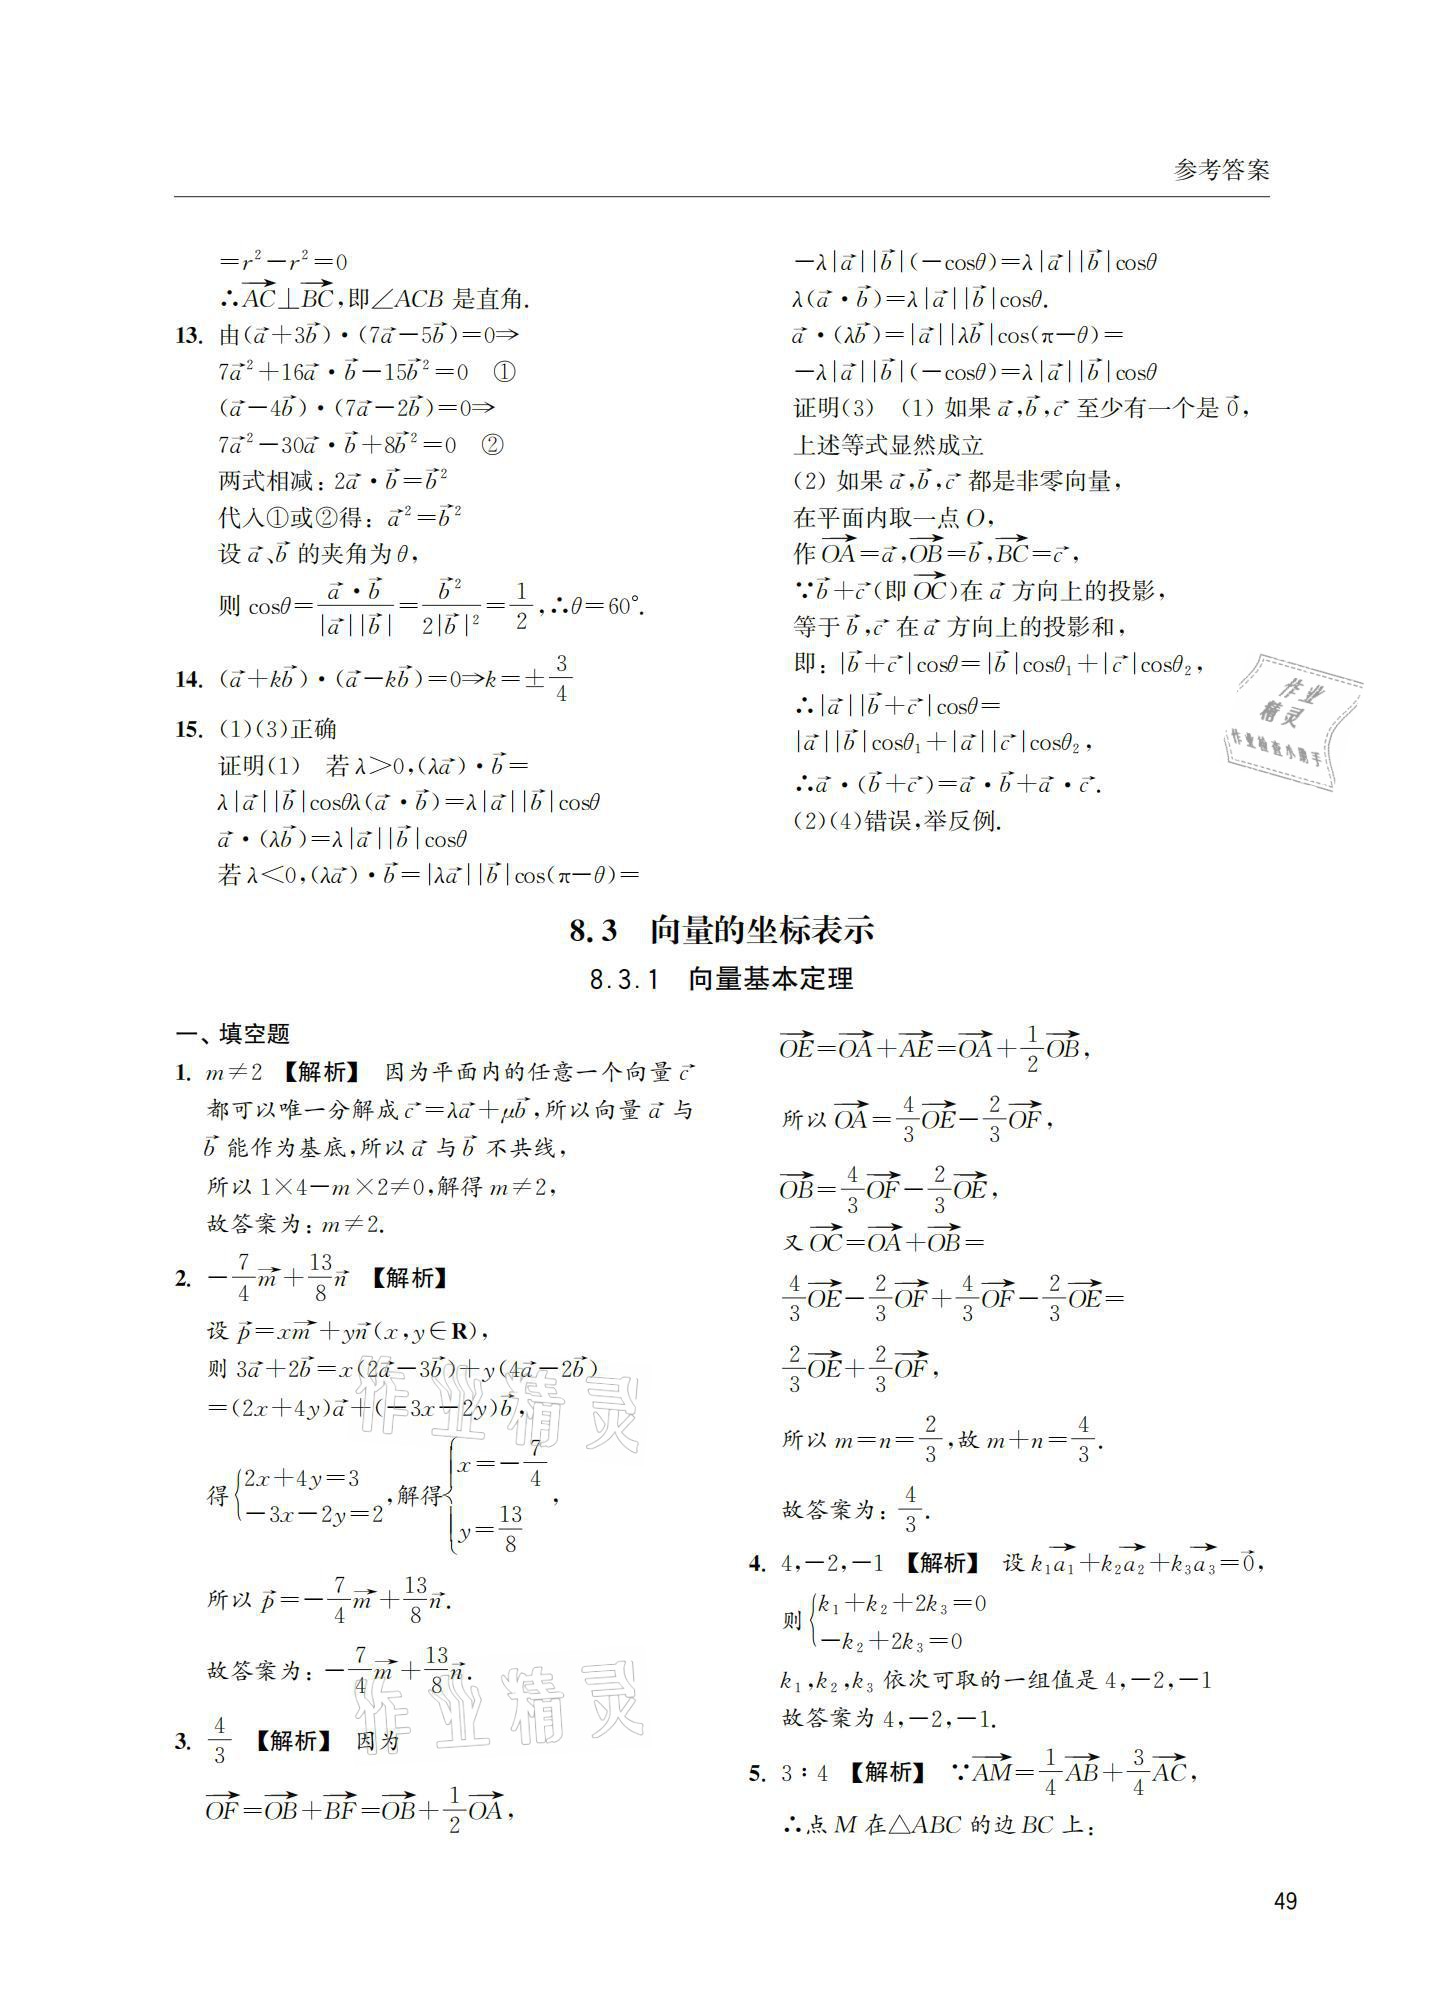 参考答案
=r²-r²=0
∴AC⃗⊥BC⃗,即∠ACB 是直角.
13. 由(a⃗+3b⃗)·(7a⃗-5b⃗)=0⇒
7a⃗²+16a⃗·b⃗-15b⃗²=0 ①
(a⃗-4b⃗)·(7a⃗-2b⃗)=0⇒
7a⃗²-30a⃗·b⃗+8b⃗²=0 ②
两式相减: 2a⃗·b⃗=b⃗²
代入①或②得: a⃗²=b⃗²
设 a⃗、b⃗ 的夹角为 θ,
则 cosθ=a⃗·b⃗/|a⃗||b⃗|=b⃗²/2|b⃗|²=1/2,∴θ=60°.
14. (a⃗+kb⃗)·(a⃗-kb⃗)=0⇒k=±3/4
15. (1)(3)正确
证明(1) 若 λ>0,(λa⃗)·b⃗=
λ|a⃗||b⃗|cosθλ(a⃗·b⃗)=λ|a⃗||b⃗|cosθ
a⃗·(λb⃗)=λ|a⃗||b⃗|cosθ
若 λ<0,(λa⃗)·b⃗=|λa⃗||b⃗|cos(π-θ)=
-λ|a⃗||b⃗|(-cosθ)=λ|a⃗||b⃗|cosθ
λ(a⃗·b⃗)=λ|a⃗||b⃗|cosθ.
a⃗·(λb⃗)=|a⃗||λb⃗|cos(π-θ)=
-λ|a⃗||b⃗|(-cosθ)=λ|a⃗||b⃗|cosθ
证明(3) (1) 如果 a⃗,b⃗,c⃗ 至少有一个是 0⃗,
上述等式显然成立
(2) 如果 a⃗,b⃗,c⃗ 都是非零向量,
在平面内取一点 O,
作 OA⃗=a⃗,OB⃗=b⃗,BC⃗=c⃗,
∵b⃗+c⃗(即 OC⃗)在 a⃗ 方向上的投影,
等于 b⃗,c⃗ 在 a⃗ 方向上的投影和,
即: |b⃗+c⃗|cosθ=|b⃗|cosθ₁+|c⃗|cosθ₂,
∴|a⃗||b⃗+c⃗|cosθ=
|a⃗||b⃗|cosθ₁+|a⃗||c⃗|cosθ₂,
∴a⃗·(b⃗+c⃗)=a⃗·b⃗+a⃗·c⃗.
(2)(4)错误,举反例.
作业
精灵
作业检查小助手
8.3 向量的坐标表示
8.3.1 向量基本定理
一、填空题
1. m≠2 【解析】 因为平面内的任意一个向量 c⃗
都可以唯一分解成 c⃗=λa⃗+μb⃗,所以向量 a⃗ 与
b⃗ 能作为基底,所以 a⃗ 与 b⃗ 不共线,
所以 1×4-m×2≠0,解得 m≠2,
故答案为: m≠2.
2. -7/4m⃗+13/8n⃗ 【解析】
设 p⃗=xm⃗+yn⃗(x,y∈R),
则 3a⃗+2b⃗=x(2a⃗-3b⃗)+y(4a⃗-2b⃗)
=(2x+4y)a⃗+(-3x-2y)b⃗,
得{2x+4y=3
-3x-2y=2,解得{x=-7/4
y=13/8,
所以 p⃗=-7/4m⃗+13/8n⃗.
故答案为: -7/4m⃗+13/8n⃗.
3. 4/3 【解析】 因为
OF⃗=OB⃗+BF⃗=OB⃗+1/2OA⃗,
OE⃗=OA⃗+AE⃗=OA⃗+1/2OB⃗,
所以 OA⃗=4/3OE⃗-2/3OF⃗,
OB⃗=4/3OF⃗-2/3OE⃗,
又 OC⃗=OA⃗+OB⃗=
4/3OE⃗-2/3OF⃗+4/3OF⃗-2/3OE⃗=
2/3OE⃗+2/3OF⃗,
所以 m=n=2/3,故 m+n=4/3.
故答案为: 4/3.
4. 4,-2,-1 【解析】 设 k₁a₁⃗+k₂a₂⃗+k₃a₃⃗=0⃗,
则{k₁+k₂+2k₃=0
-k₂+2k₃=0
k₁,k₂,k₃ 依次可取的一组值是 4,-2,-1
故答案为 4,-2,-1.
5. 3∶4 【解析】 ∵AM⃗=1/4AB⃗+3/4AC⃗,
∴点 M 在△ABC 的边 BC 上:
作业精灵
作业精灵
49